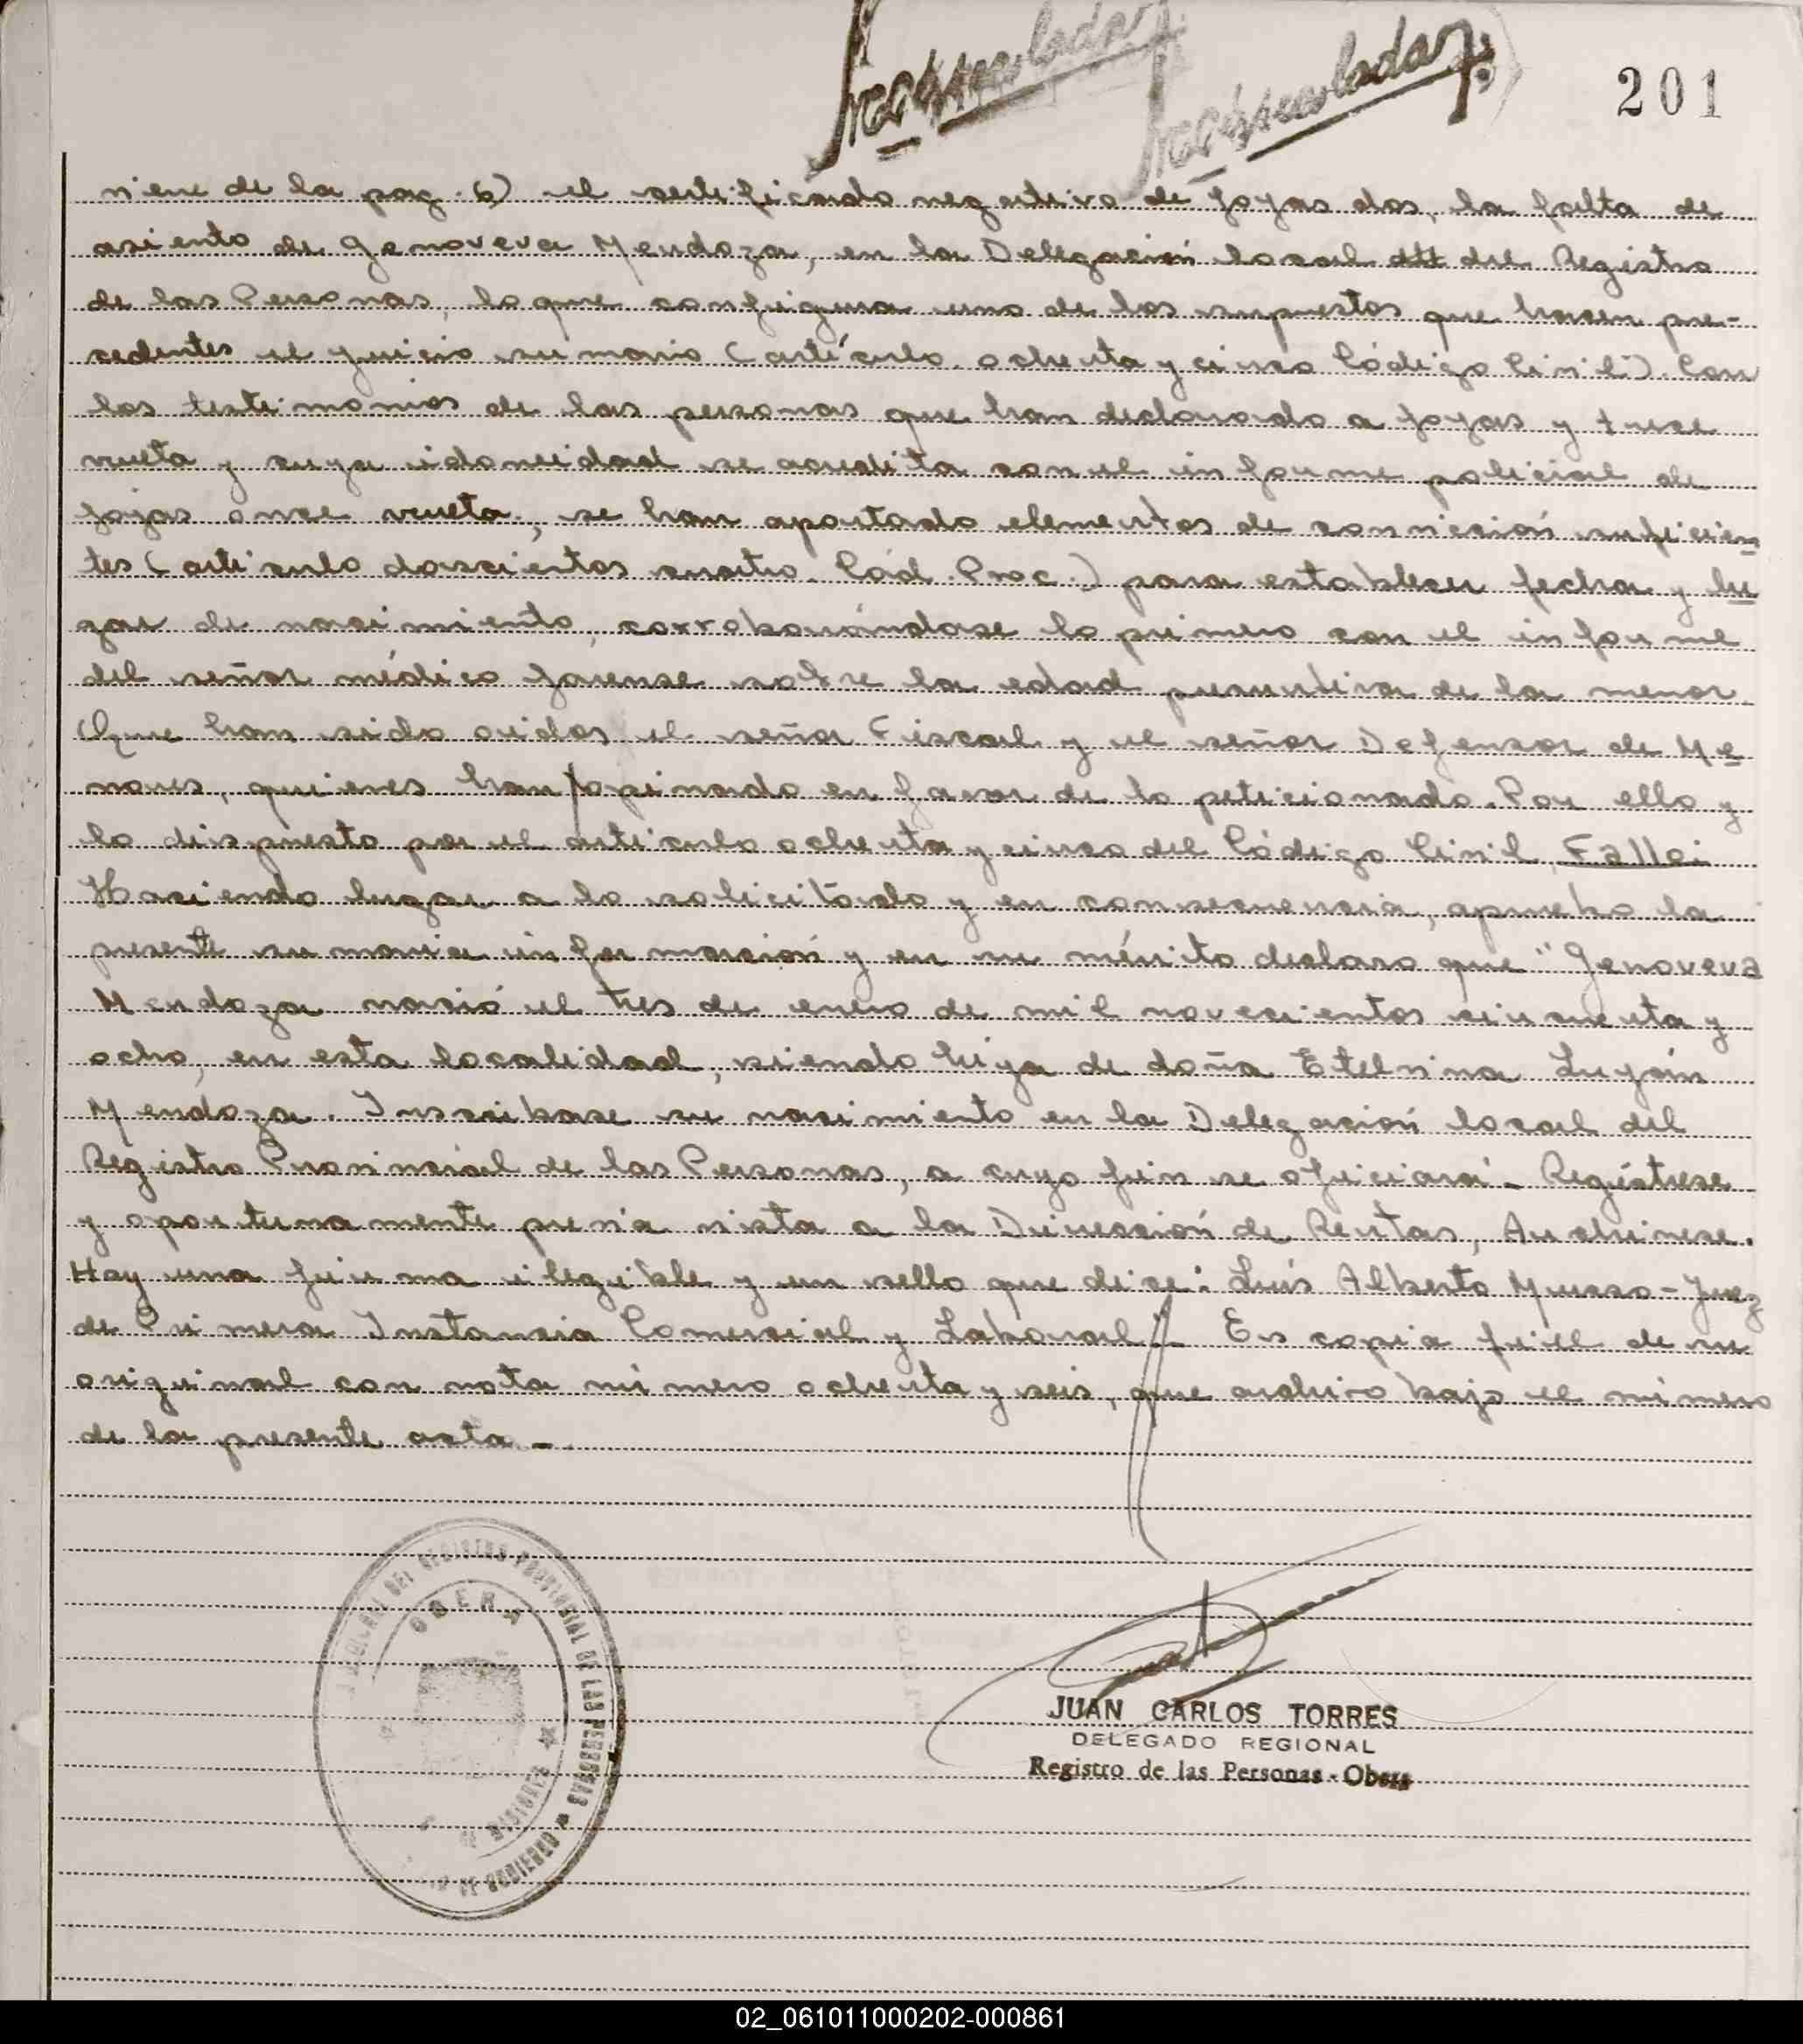 201
viene de la pag. 6) el certificado negativo de fojas dos, la falta de
asiento de Genoveva Mendoza, en la Delegación local del Registro
de las Personas, lo que configura uno de los supuestos que hacen pro-
cedentes el juicio sumario (artículo ochenta y cinco Código Civil). Con
los testimonios de las personas que han declarado a fojas y trece
vuelta y cuya idoneidad se acredita con el informe policial de
fojas once vuelta, se han aportado elementos de convicción suficien
tes (artículo doscientos cuatro Cód. Proc.) para establecer fecha y lu
gar de nacimiento, corroborándose lo primero con el informe
del señor médico forense sobre la edad presuntiva de la menor.
Que han sido oidos el señor Fiscal y el señor Defensor de Me
nores, quienes han opinado en favor de lo peticionado. Por ello y
lo dispuesto por el artículo ochenta y cinco del Código Civil, Fallo:
Haciendo lugar a lo solicitado y en consecuencia, apruebo la
presente sumaria información y en su mérito declaro que "Genoveva
Mendoza nació el tres de enero de mil novecientos cincuenta y
ocho, en esta localidad, siendo hija de doña Etelvina Luján
Mendoza. Inscribase su nacimiento en la Delegación local del
Registro Provincial de las Personas, a cuyo fin se oficiará. Regístrese
y oportunamente previa vista a la Dirección de Rentas, Archivese.
Hay una firma ilegible y un sello que dice: Luis Alberto Musso - Juez
de Primera Instancia Comercial y Laboral. Es copia fiel de su
original con nota número ochenta y seis, que archivo bajo el número
de la presente acta.-
DEL REGISTRO PROVINCIAL DE LAS PERSONAS
OBERA
JUAN CARLOS TORRES
DELEGADO REGIONAL
Registro de las Personas - Obera
02_061011000202-000861